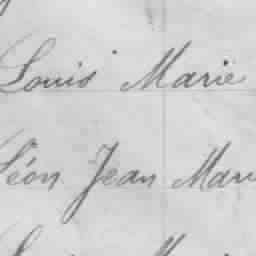 Louis Marie
Léon Jean Mari